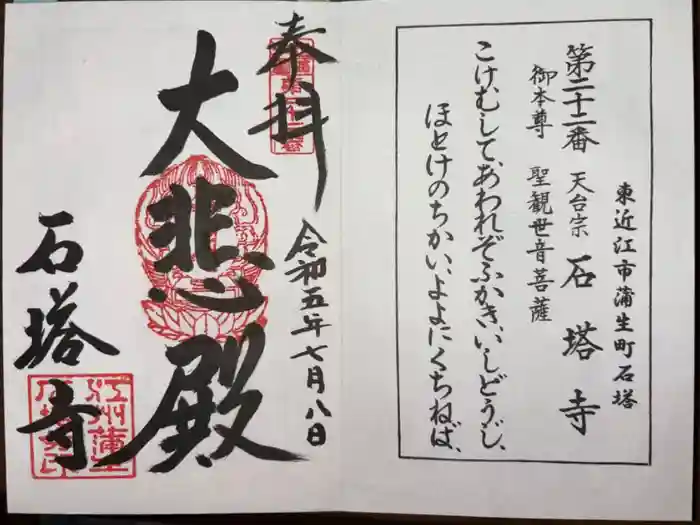 東近江市蒲生町石塔
第二十二番 天台宗 石塔寺
御本尊 聖観世音菩薩
こけむして、あわれぞふかき、いしどうじ、
ほとけのちかい、よよにくちねば、
奉拝
令和五年七月八日
大悲殿
石塔寺